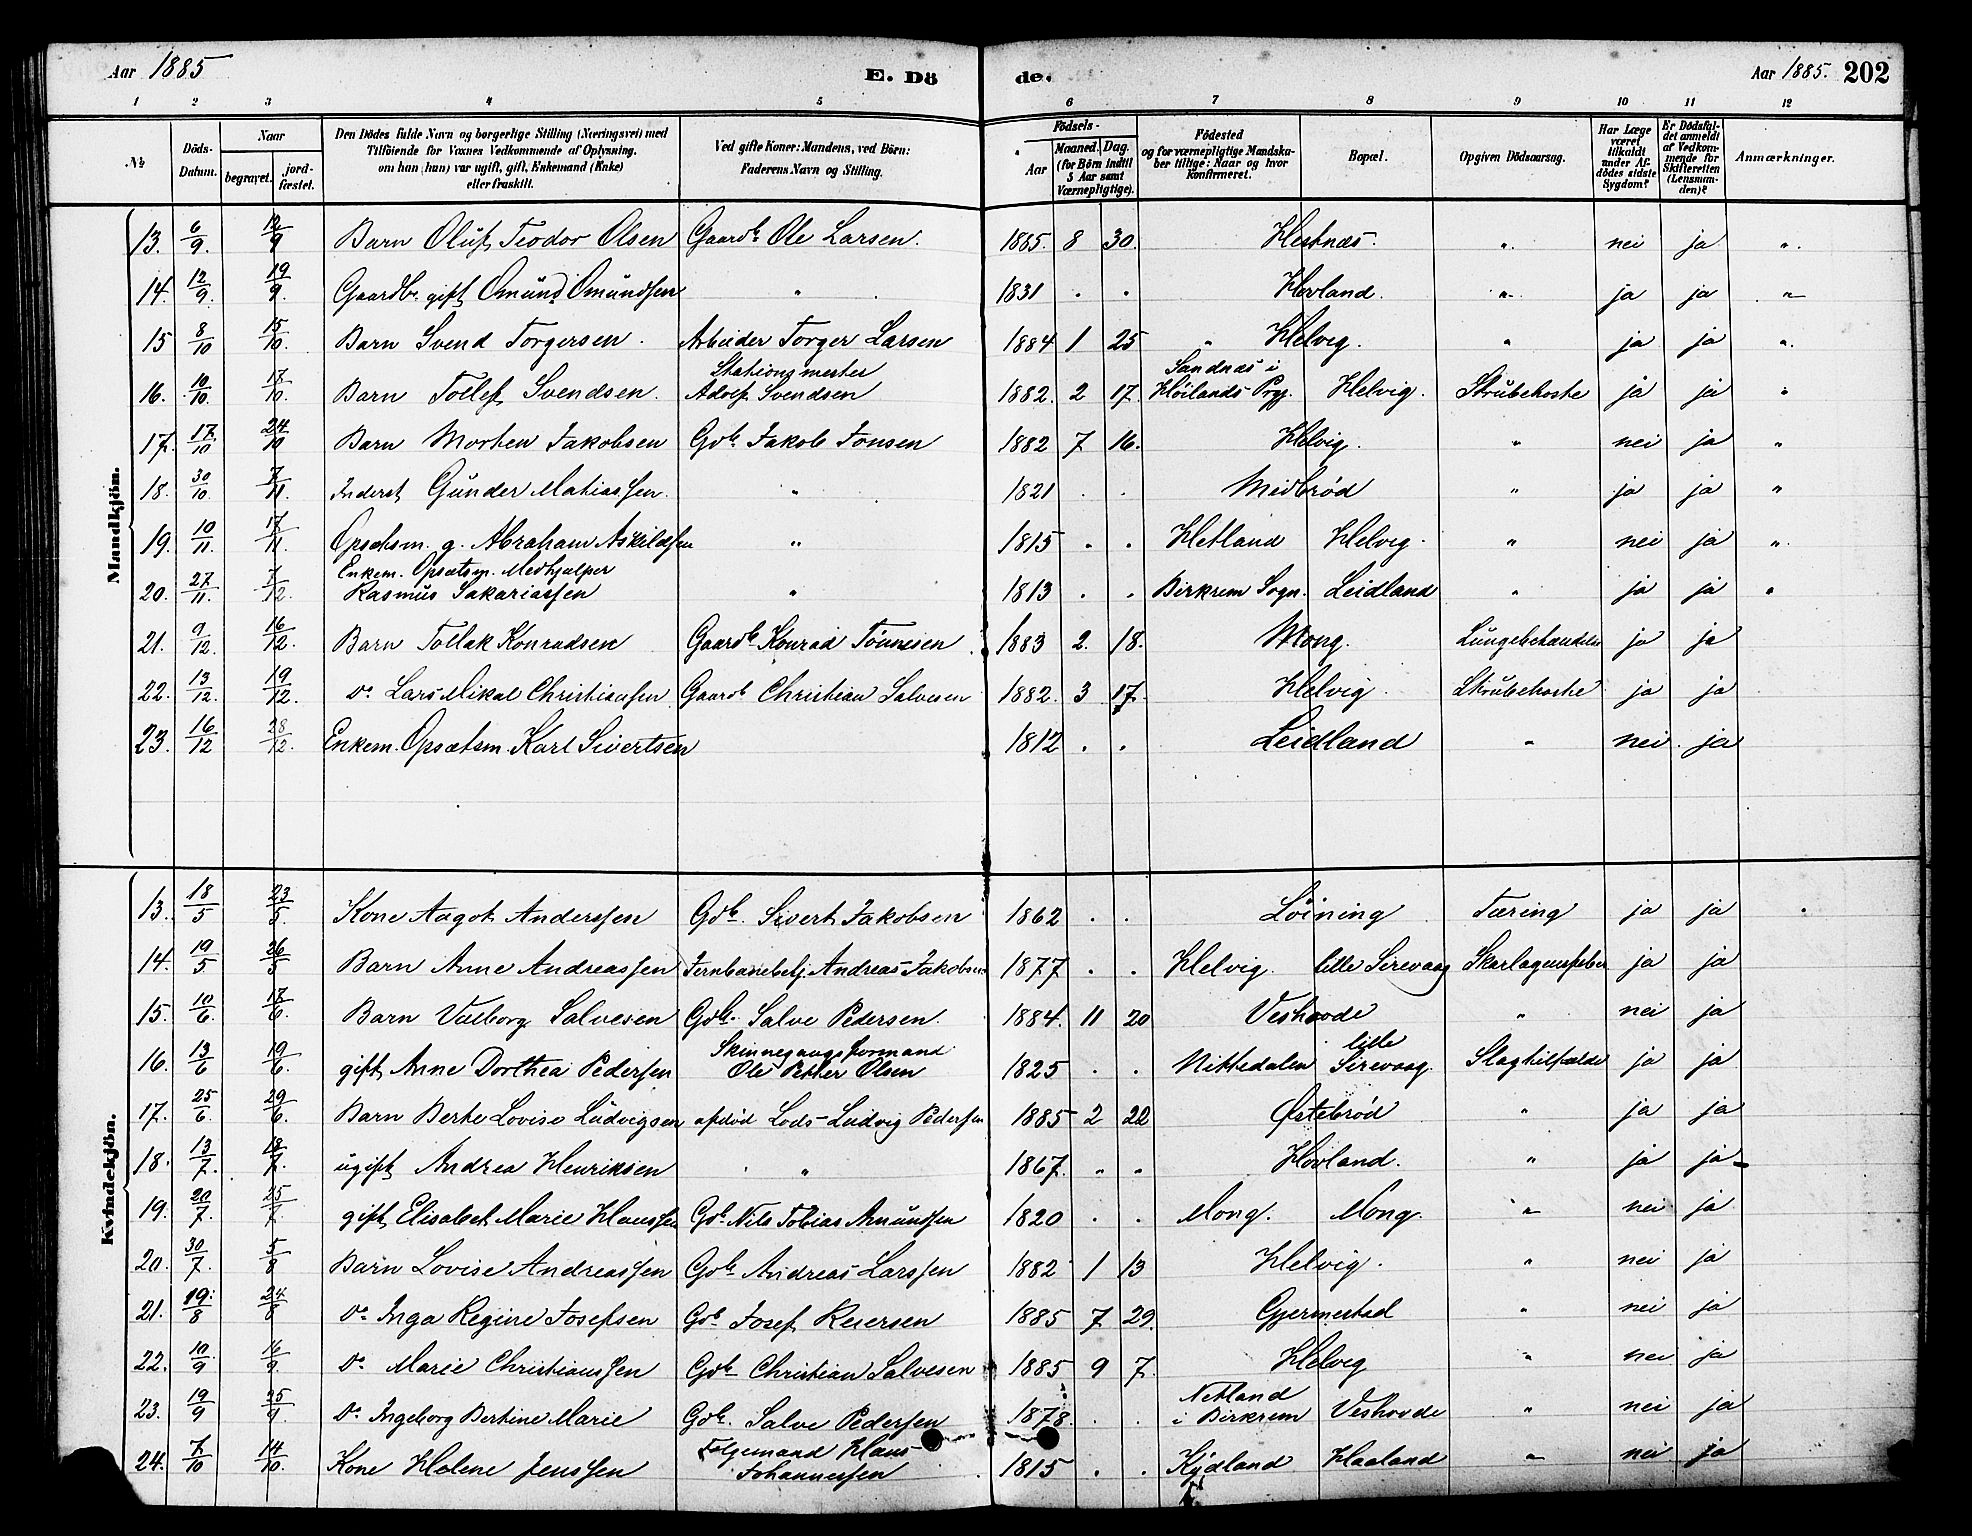 Aar 1885 E. Dö de. Aar 1885. 202
1 2 3 4 5 6 7 8 9 10 11 12
No Döds-Datum. Naar begravet. jord-fæstet. Den Dödes fulde Navn og borgerlige Stilling (Næringsvei) med Tilföiende for Voxnes Vedkommende af Oplysning, om han (hun) var ugift, gift, Enkemand (Enke) eller fraskilt. Ved gifte Koner: Mandens, ved Börn: Faderens Navn og Stilling. Födsels- Aar Maaned. Dag. (for Börn indtil 5 Aar samt Værnepligtige). Födested og for værnepligtige Mandskaber tillige: Naar og hvor Konfirmeret. Bopæl. Opgiven Dödsaarsag. Har Læge været tilkaldt under Afdödes sidste Sygdom? Er Dödsfaldet anmeldt af Vedkommende for Skifteretten (Lensmanden)? Anmærkninger.
Mandkjön.
13. 6/9. 12/9 Barn Oluf Teodor Olsen Gaardb. Ole Larsen. 1885. 8 30. Hestnæs. " nei ja "
14. 12/9. 19/9. Gaardbr. gift Omünd Omündsen " 1831 . . Hovland. " ja ja "
15 8/10 15/10. Barn Svend Torgersen. Arbeider Torger Larsen 1884 1 25 " Helvig. " ja ja "
16. 10/10. 17/10. Barn Tollef Svendsen. Stationsmester Adolf Svendsen 1882. 2 17. Sandnæs i Höilands Prgj. Helvig. Strübehoste ja ja "
17. 17/10. 24/10 Barn Morten Jakobsen Gdb. Jakob Tonsen 1882 7 16. Helvig. " nei ja "
18. 30/10. 7/11. Inderst Günder Mathiassen. " 1821 . . Midbrød " ja ja "
19. 10/11. 17/11. Opsætsm. g. Abraham Askildsen " 1815 . . Hetland Helvig. " nei ja "
20. 27/11. 7/12. Enkem. Opsætsm. Medhjælper Rasmüs Sakariassen " 1813 . . Birkrem Sogn. Leidland " ja ja "
21. 9/12. 16/12. Barn Tollak Konradsen Gaardb. Konrad Tønnesen 1883 2. 18. Mong. ja ja
22. 13/12. 19/12. Do. Lars Mikal Christiansen Gaardb Christian Salvesen 1882. 3 17. Helvig. Strübehoste ja ja
23. 16/12 28/12. Enkem. Opsætsm. Karl Sivertsen 1812 . . Leidland " nei. ja
Kvindekjön.
13. 18/5 23/5. Kone Aagot Anderssen Gdb. Sivert Jakobsen 1862 . . Löining Tæring ja ja
14. 19/5 26/5 Barn Anne Andreassen Jernbanebetj. Andreas Jakobsen 1877 . . Helvig. lille Sirevaag Skarlagensfeber ja ja
15. 10/6. 17/6. Barn Valborg Salvesen Gdb. Salve Pedersen. 1884. 11 20 Veshovde " nei ja
16. 13/6 19/6. gift Anne Dorthea Pedersen Skinnegangsformand Ole Petter Olsen 1825 . . Nittedalen lille Sirevaag. Slagtilfælde ja ja
17. 25/6 29/6. Barn Berte Lovise Lüdvigsen afdød Lods Ludvig Pedersen 1885 2 22 Østebrød " ja ja
18. 13/7. 18/7. ugift Andrea Henriksen " 1867. " " Hovland. " ja ja
19. 20/7. 25/7 gift Elisabet Marie Hanssen Gdb. Nils Tobias Amündsen 1820 . . Mong. Mong. " nei ja
20. 30/7. 5/8 Barn Lovise Andreassen Gdb. Andreas Larssen 1882 1 13 Helvig. " nei ja
21. 19/8 24/8 Do. Inga Regine Josefsen Gdb. Josef Reiersen 1885 7 29. Gjermestad " nei ja
22. 10/9 16/9. Do. Marie Christianssen Gdb Christian Salvesen 1885 9 7. Helvig " nei ja
23. 19/9 25/9. Do. Ingeborg Bertine Marie Gdb. Salve Pedersen 1878. . . Netland i Birkrem Veshovde " nei ja
24. 7/10 14/10. Kone Helene Jenssen Følgemand Hans Johannessen 1815 . . Kydland Haaland " nei ja